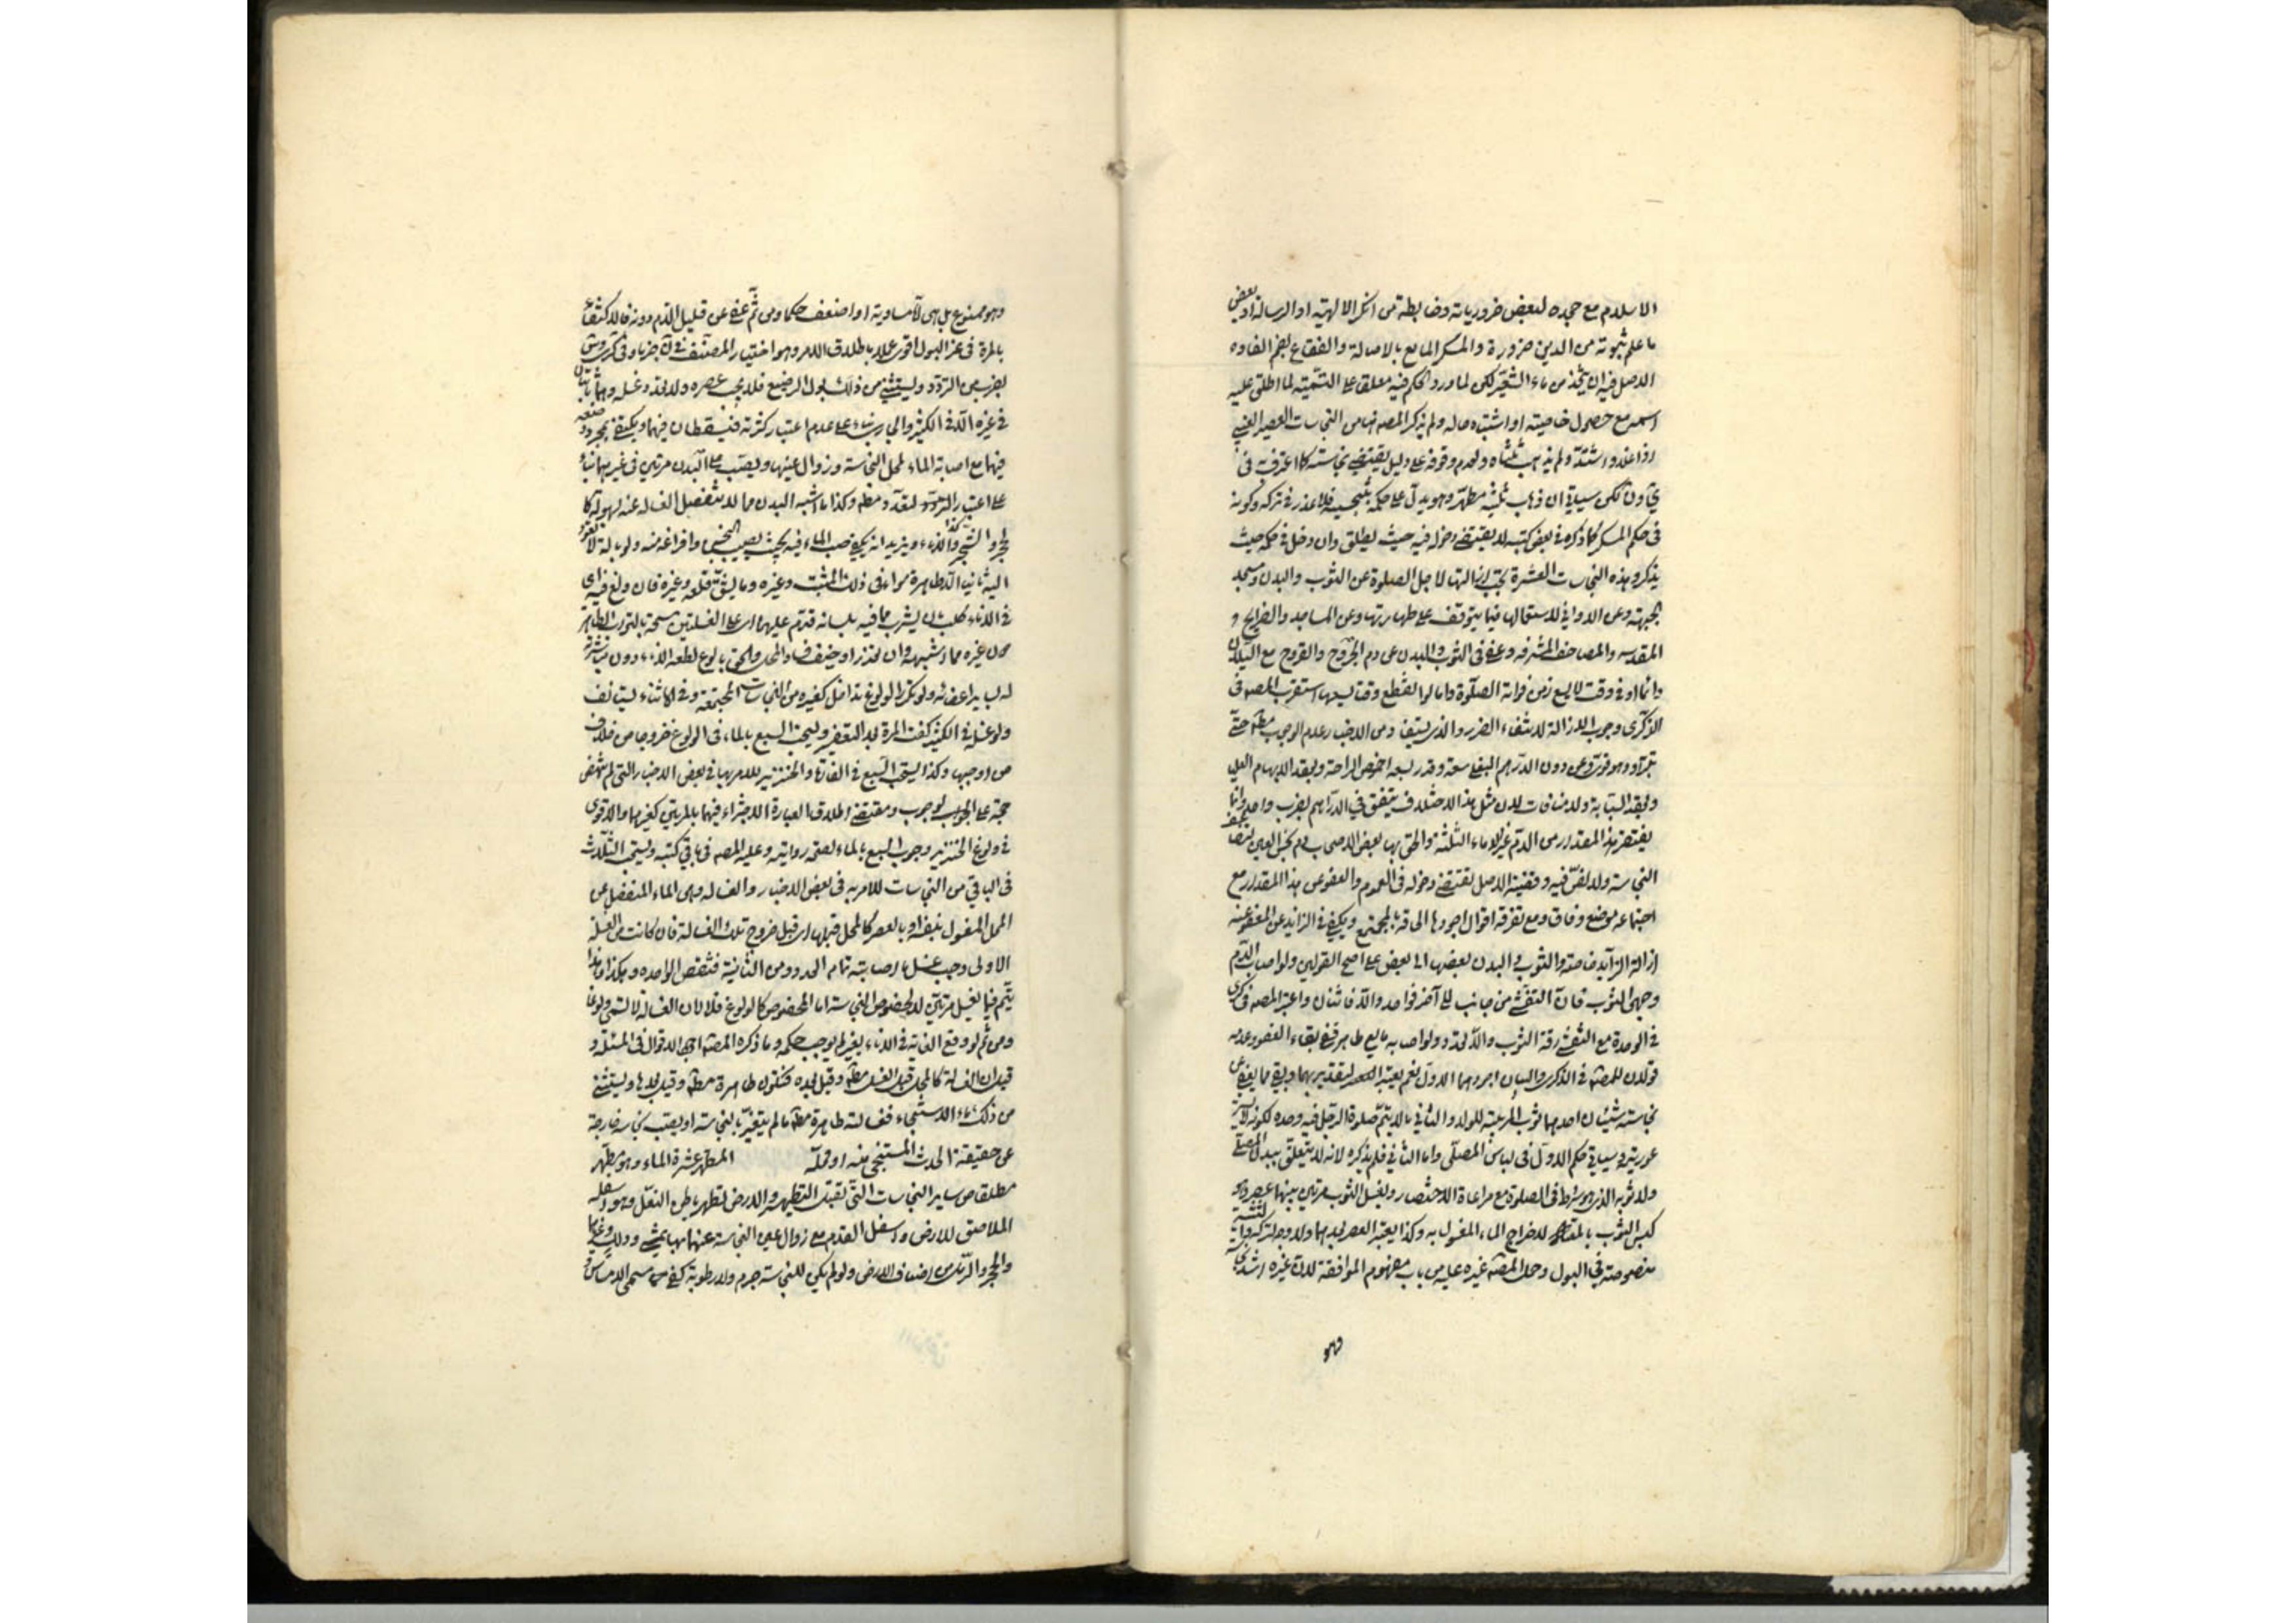 الاسلام مع جحده لبعض ضرورياته وضابطه من انكر الالهية او الرسالة او بعض
ما علم ثبوته من الدين ضرورة والمسكر المايع بالاصالة والفقاع بضم الفاء و
الاصل فيه ان يتخذ من ماء الشعير لكن لما ورد الحكم فيه معلقا على التسمية لما اطلق عليه
اسمه مع حصول خاصيته او اشتبه حاله ولم يذكر المصه هنا من النجاسات العصير العنبي
اذا غلا واشتد ولم يذهب ثلثاه ولعدم وقوفه على دليل يقتضي نجاسته كما اعترف في
ن لكن سياتي ان ذهاب ثلثيه مطهر وهو يدل على حكمه بتنجيسه فلا عذر في تركه وكونه
في حكم المسكر كما ذكره في بعض كتبه لا يقتضي دخوله فيه حيث يطلق وان دخل في حكمه حيث
يذكر وهذه النجاسات العشرة يجب ازالتها لاجل الصلوة عن الثوب والبدن ومسجد
الجبهة وعن الاواني لاستعمالها فيما يتوقف على طهارتها وعن المساجد والضرايح و
المقدسه والمصاحف المشرفه وعفي في الثوب والبدن عن دم الجروح والقروح مع السيلان
دائما او في وقت لا يسع زمن فواته الصلوة واما لو انقطع وقتا يسعها استقرب المصه في
الذكرى وجوب الازالة لانتفاء الضرر والذي يستفاد من الاخبار عدم الوجوب مطم حتى
تبرا وهو قوي وعن دون الدرهم البغلي سعة وقدر بسعة اخمص الراحة وبعقد الابهام العليا
وبعقد السبابة ولا منافات لان مثل هذا الاختلاف يتفق في الدراهم بضرب واحد وانما
يغتفر هذا المقدار من الدم غير الدماء الثلثة والحق بها بعض الاصحاب دم نجس العين لتضاعف
النجاسة ولا نص فيه وقضية الاصل تقتضي دخوله في العموم والعفو عن هذا المقدار مع
اجتماعه موضع وفاق ومع تفرقه اقوال اجودها الحاقه بالمجتمع ويكفي في الزايد عن المعفو عنه
ازالة الزايد خاصة والثوب والبدن يضم بعضها الى بعض على اصح القولين ولو اصاب الدم
وجهي الثوب فان تفشى من جانب الى آخر فواحد والا فاثنان واعتبر المصه في الذكرى
في الوحدة مع التفشي رقة الثوب والا تعدد ولو اصابه مايع طاهر ففي بقاء العفو وعدمه
قولان للمصه في الذكرى والبيان اجودهما الاول نعم يعتبر التقدير بهما وبقي مما يعفى عن
نجاسته شيئان احدهما ثوب المربية للولد والثاني ما لا يتم صلوة الرجل فيه وحده لكونه لا يستر
عورتيه وسياتي حكم الاول في لباس المصلي واما الثاني فلم يذكره لانه لا يتعلق ببدن المصلي
ولا ثوبه الذي هو شرط في الصلوة مع مراعاة الاختصار ويغسل الثوب مرتين بينهما عصر وهو
كبس الثوب بالمعتاد لاخراج الماء المغسول به وكذا يعتبر العصر بعدهما ولا وجه لتركه والتثنية
منصوصة في البول وحمل المصه غيره عليه من باب مفهوم الموافقة لان غيره اشد نجاسة
وهو
وهو ممنوع بل هي اما مساوية او اضعف حكما ومن ثم عفي عن قليل الدم دونه فالاكتفاء
بالمرة في غير البول اقوى عملا باطلاق الامر وهو اختيار المصنف في ن جزما وفي كرى وس
بضرب من التردد ويستثنى من ذلك بول الرضيع فلا يجب عصره ولا تعدد غسله وهما ثابتان
في غيره الا في الكثير والجاري بناء على عدم اعتبار كثرته فيسقطان فيهما ويكتفى بمجرد وضعه
فيهما مع اصابة الماء لمحل النجاسة وزوال عينها ويصب على البدن مرتين في غيرهما بناء
على اعتبار التعدد مطم وكذا ما اشبه البدن مما لا ينفصل الغسالة عنه بسهولة كا
لحجر والشجر وكذا الاناء ويزيد انه يكفي صب الماء فيه بحيث يصيب النجس وافراغه منه ولو بآلة لا تعود
اليه ثانيا الا طاهرة سواء في ذلك المثبت وغيره وما يشق قلعه وغيره فان ولغ فيه اي
في الاناء كلب بان يشرب مما فيه بلسانه قدم عليهما اي على الغسلتين مسحه بالتراب الطاهر
دون غيره مما اشبهه وان تعذر او خيف فساد المحل والحق بالولوغ لطعه الاناء دون مباشرته
له بساير اعضائه ولو تكرر الولوغ تداخل كغيره من النجاسات المجتمعة وفي الاثناء يستانف
ولو غسله في الكثير كفت المرة بعد التعفير ويستحب السبع بالماء في الولوغ خروجا من خلاف
من اوجبها وكذا يستحب السبع في الفارة والخنزير للامر بها في بعض الاخبار التي لم تنهض
حجة على الوجوب ومقتضى اطلاق العبارة الاجتزاء فيهما بالمرتين كغيرهما والاقوى
في ولوغ الخنزير وجوب السبع بالماء لصحة روايته وعليه المصه في باقي كتبه ويستحب الثلاث
في الباقي من النجاسات للامر به في بعض الاخبار والغسالة وهي الماء المنفصل عن
المحل المغسول بنفسه او بالعصر كالمحل قبلها اي قبل خروج تلك الغسالة فان كانت من الغسلة
الاولى وجب غسل ما اصابته تمام العدد ومن الثانية فتنقص الواحدة وهكذا وهذا
يتم فيما يغسل مرتين لا لخصوص النجاسة اما المخصوص كالولوغ فلا لان الغسالة لا تسمى ولوغا
ومن ثم لو وقع لعابه في الاناء بغيره لم يوجب حكمه وما ذكره المصه اجود الاقوال في المسئلة و
قيل ان الغسالة كالمحل قبل الغسل مطم وقيل بعده فتكون طاهرة مطم وقيل بعدها ويستثنى
من ذلك ماء الاستنجاء فغسالته طاهرة مطم ما لم يتغير بالنجاسة او يصب نجاسة خارجة
عن حقيقة الحدث المستنجى منه او محله المطهر عشرة الماء وهو مطهر
مطلقا من ساير النجاسات التي تقبل التطهير والارض تطهر باطن النعل وهو اسفله
الملاصق للارض واسفل القدم مع زوال عين النجاسة عنهما بها بمشي ودلك وغيرهما
والحجر والرمل من اصناف الارض ولو لم يكن للنجاسة جرم ولا رطوبة كفى مسمى الامساس و